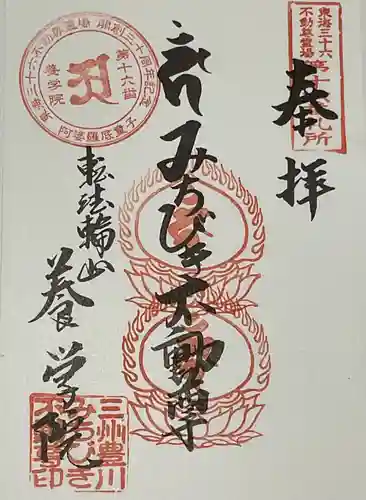 東海三十六
不動尊霊場
第十六札所
奉拝
みちびき不動尊
転法輪山
養学院
東海三十六不動尊霊場 開創三十周年記念
第十六番
養学院
阿婆羅底童子
三州豊川
みちびき
不動尊印